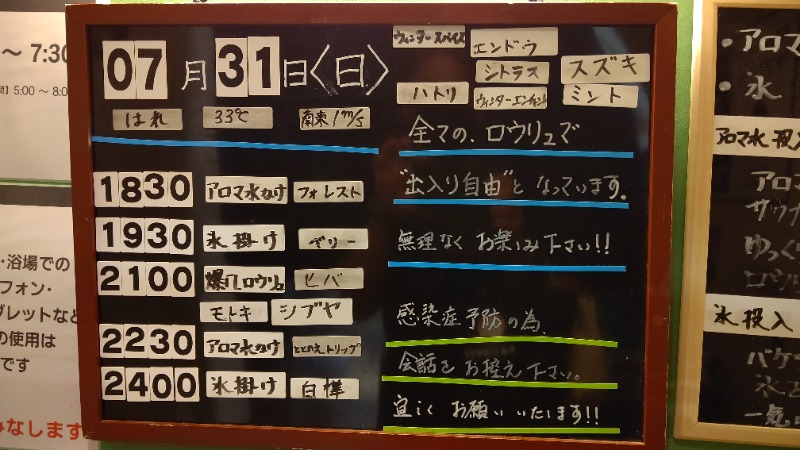 ～7:30
5:00～8:0
・浴場での
フォン・
ブレットなど
の使用は
です
みなします
07月31日〈日〉
はれ 33℃ 南東1m/s
1830 アロマ水かけ フォレスト
1930 氷掛け ベリー
2100 爆汗ロウリュ ヒバ
モトキ シブヤ
2230 アロマ水かけ ととのえトリップ
2400 氷掛け 白樺
ウィンタースパイス エンドウ
シトラス スズキ
ハトリ ミント
全ての、ロウリュで
"出入り自由"となっています。
無理なくお楽しみ下さい!!
感染症予防の為、
会話をお控え下さい。
宜しくお願いいたします!!
・アロマ
・氷
アロマ水投入
アロマ
サウナ
ゆっく
ロウリ
氷投入
バケ
氷を
一気